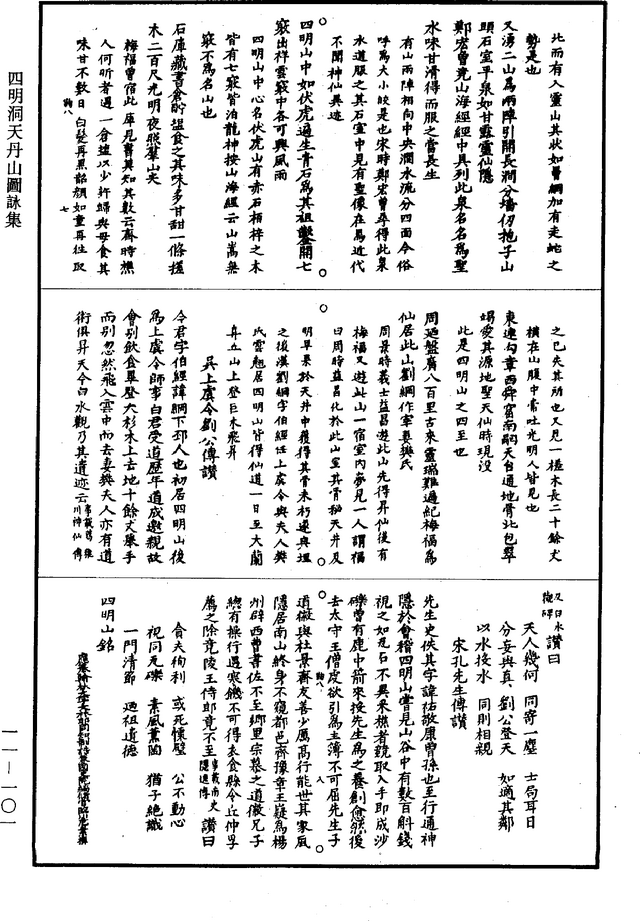 四明洞天丹山圖詠集
一一—一〇一
此而有入靈山其狀如罾綱加有走蛇之
勢是也
又湧二山爲兩陣引開長澗分墻仞抱子山
頭石室平泉如甘露靈仙隱
鄭宏曾覓山海經經中具列此泉名名爲聖
水味甘滑得而服之當長生
有山兩陣相向中央澗水流分四面今俗
呼爲大小皎是也宋時鄭宏曾尋得此泉
水道服之其石室中見有聖像在焉近代
不聞神仙異迹
四明山中如伏虎遍生青石爲其祖鑿開七
竅出祥雲竅中各可興風雨
四明山中心名伏虎山有赤石栢梓之木
皆有七竅皆泊龍神按山海經云山嵩無
竅不爲名山也
石庫藏書倉貯塩食之其味多甘甜一條槎
木二百尺光明夜照羣山尖
梅福曾宿此庫見書莫知其數云齋時樵
人何昕者遇一倉塩以少許歸與母食其
味甘不數日白髮再黑韶顏如童再往取
鞠八
七
之已失其所也又見一槎木長二十餘丈
橫在山腹中常吐光明人皆見也
東連勾章西舜窟南嗣天台通地骨北包翠
堨愛其源地聖天仙時現没
此是四明山之四至也
周廻盤廣八百里古來靈瑞難過紀梅福爲
仙居此山劉綱作宰妻樊氏
周景時義士益昌遊此山先得昇仙後有
梅福又遊此山一宿室内夢見一人謂福
曰周時益昌化於此山里其骨秘天井及
明早果於天井中獲得其骨未朽遷與埋
之後漢劉綱字伯經任上虞令與夫人樊
氏雲翹居四明山皆得仙道一日至大蘭
阜丘山上登巨木飛昇
吳上虞令劉公傳讚
令君字伯經諱綱下邳人也初居四明山後
爲上虞令師事白君受道歷年道成邀親故
會别飲食畢登大杉木上去地十餘丈舉手
而别忽然飛入雲中而去妻樊夫人亦有道
術俱昇天今白水觀乃其遺迹云
讚曰
天人幾何 同寄一塵 士局耳目
分妄與真 劉公登天 如適其鄰
以水投水 同則相親
宋孔先生傳讚
先生史佚其字諱祐敬康曾孫也至行通神
隱於會稽四明山嘗見山谷中有數百斛錢
視之如瓦石不異采樵者競取入手即成沙
礫曾有鹿中箭來投先生爲之養創愈然後
去太守王僧虔欲引爲主簿不可屈先生子
道徽與杜景齋友善少厲高行能世其家風
隱居南山終身不窺都邑齊豫章王嶷爲楊
州辟西曹書佐不至鄉里宗慕之道徽兄子
總有操行遇寒饑不可得衣食縣令丘仲孚
薦之除竟陵王侍郎竟不至
讚曰
鞠八
八
貪夫徇利 或死懷璧 公不動心
視同瓦礫 素風薰陶 猶子絶識
一門清節 迺祖遺德
四明山銘